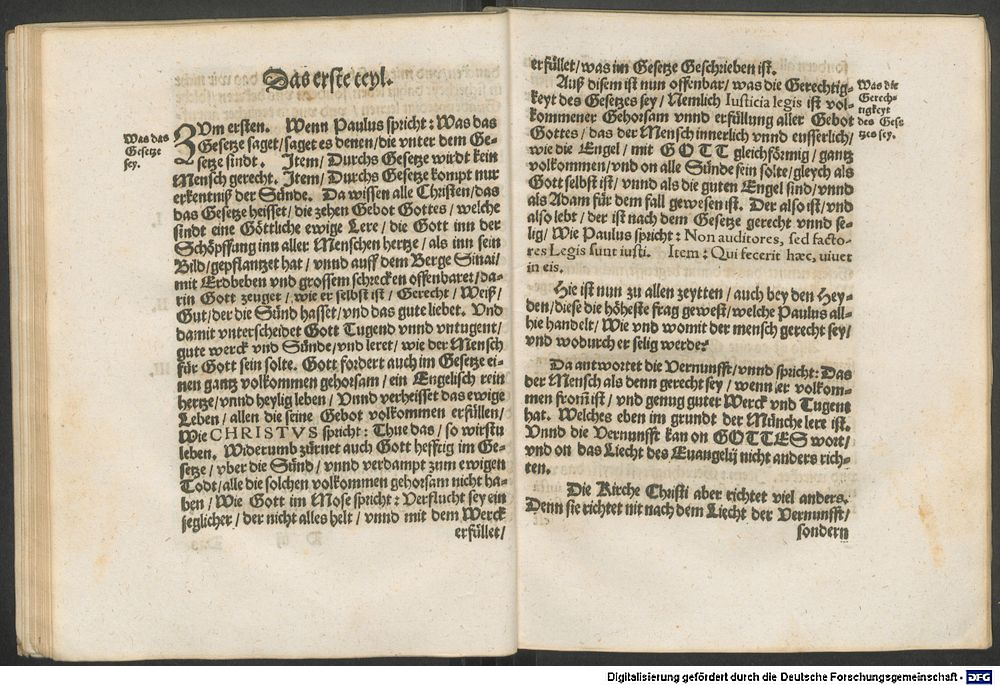 Das erste teyl.
Was das
Gesetze
sey.
ZVm ersten. Wenn Paulus spricht: Was das
Gesetze saget/saget es denen/die vnter dem Ge-
setze sindt. Item/Durchs Gesetze wirdt kein
Mensch gerecht. Item/Durchs Gesetze kompt nur
erkentniß der Sünde. Da wissen alle Christen/das
das Gesetze heisset/die zehen Gebot Gottes/welche
sindt eine Göttliche ewige Lere/die Gott inn der
Schöpffung inn aller Menschen hertze/als inn sein
Bild/gepflantzet hat/vnnd auff dem Berge Sinai/
mit Erdbeben vnd grossem schrecken offenbaret/da-
rin Gott zeuget/wie er selbst ist/Gerecht/Weiß/
Gut/der die Sünd hasset/vnd das gute liebet. Vnd
damit vnterscheidet Gott Tugend vnnd vntugent/
gute werck vnd Sünde/vnd leret/wie der Mensch
für Gott sein solte. Gott fordert auch im Gesetze ei-
nen gantz volkommen gehorsam/ein Engelisch rein
hertze/vnnd heylig leben/Vnnd verheisset das ewige
Leben/allen die seine Gebot volkommen erfüllen/
Wie CHRISTVS spricht: Thue das/so wirstu
leben. Widerumb zürnet auch Gott hefftig im Ge-
setze/vber die Sünd/vnnd verdampt zum ewigen
Todt/alle die solchen volkommen gehorsam nicht ha-
ben/Wie Gott im Mose spricht: Verflucht sey ein
jeglicher/der nicht alles helt/vnnd mit dem Werck
erfüllet/
erfüllet/was im Gesetze Geschrieben ist.
Auß disem ist nun offenbar/was die Gerechtig-
keyt des Gesetzes sey/Nemlich Iusticia legis ist vol-
kommener Gehorsam vnnd erfüllung aller Gebot
Gottes/das der Mensch innerlich vnnd eusserlich/
wie die Engel/mit GOTT gleichförmig/gantz
volkommen/vnd on alle Sünde sein solte/gleych als
Gott selbst ist/vnnd als die guten Engel sind/vnnd
als Adam für dem fall gewesen ist. Der also ist/vnd
also lebt/der ist nach dem Gesetze gerecht vnnd se-
lig/Wie Paulus spricht: Non auditores, sed facto-
res Legis sunt iusti. Item: Qui fecerit hæc, uiuet
in eis.
Was die
Gerech-
tigkeyt
des Gese
tzes sey.
Hie ist nun zu allen zeytten/auch bey den Hey-
den/diese die höheste frag gewest/welche Paulus all-
hie handelt/Wie vnd womit der mensch gerecht sey/
vnd wodurch er selig werde?
Da antwortet die Vernunfft/vnnd spricht: Das
der Mensch als denn gerecht sey/wenn er volkom-
men from̃ ist/vnd genug guter Werck vnd Tugent
hat. Welches eben im grundt der Münche lere ist.
Vnnd die Vernunfft kan on GOTTES wort/
vnd on das Liecht des Euangelij nicht anders rich-
ten.
Die Kirche Christi aber richtet viel anders.
Denn sie richtet nit nach dem Liecht der Vernunfft/
sondern
Digitalisierung gefördert durch die Deutsche Forschungsgemeinschaft - DFG